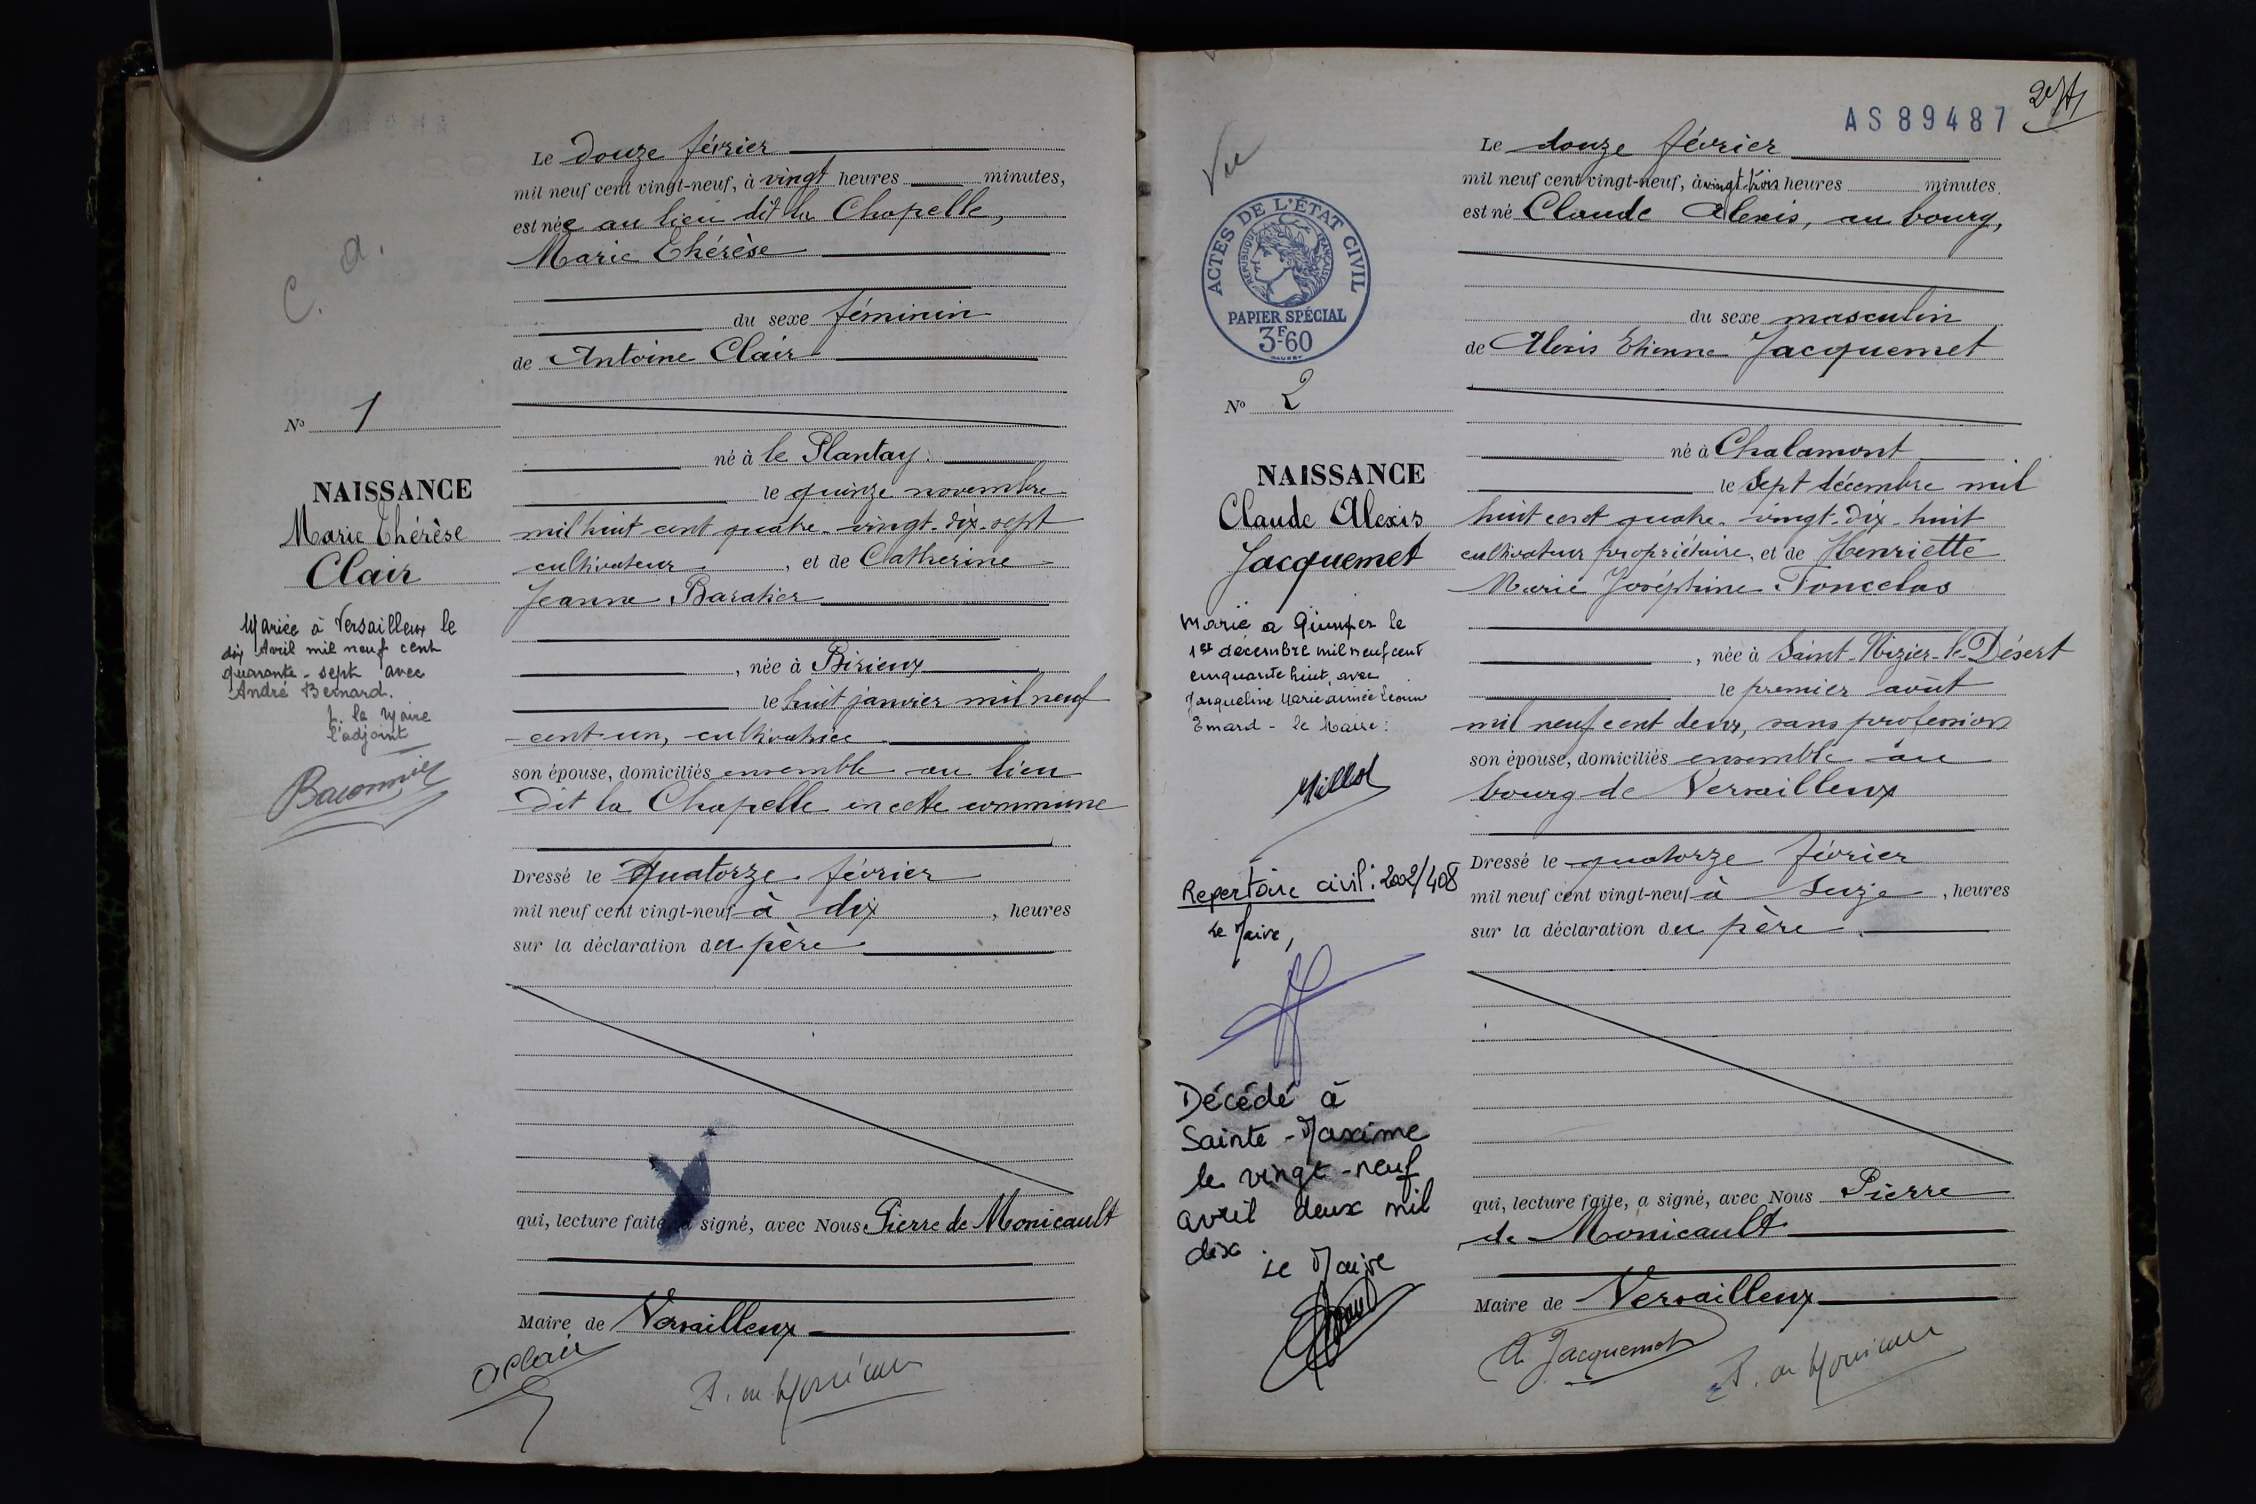 C. a.
N° 1
NAISSANCE
Marie Thérèse
Clair
Mariée à Versailleux le
dix Avril mil neuf cent
quarante-sept avec
André Bernard.
P. le Maire
l'adjoint
Le douze février
mil neuf cent vingt-neuf, à vingt heures minutes,
est née au lieu dit la Chapelle,
Marie Thérèse
du sexe féminin
de Antoine Clair
né à le Plantay
le quinze novembre
mil huit cent quatre-vingt-dix-sept
cultivateur, et de Catherine
Jeanne Baratier
, née à Birieux
le huit janvier mil neuf
cent un, cultivatrice
son épouse, domiciliés ensemble au lieu
dit la Chapelle en cette commune
Dressé le quatorze février
mil neuf cent vingt-neuf à dix, heures
sur la déclaration du père
qui, lecture faite, a signé, avec Nous Pierre de Monicault
Maire de Versailleux
A Clair
AS 89487
Vu
ACTES DE L'ÉTAT CIVIL
RÉPUBLIQUE FRANÇAISE
PAPIER SPÉCIAL
3F60
N° 2
NAISSANCE
Claude Alexis
Jacquemet
Marié à Quimper le
1er décembre mil neuf cent
cinquante huit, avec
Jacqueline Marie Aimée
Emard - le Maire :
Millot
Repertoire civil : 2002/408
Le Maire,
Décédé à
Sainte-Maxime
le vingt-neuf
avril deux mil
dix
Le Maire
Le douze février
mil neuf cent vingt-neuf, à vingt trois heures minutes
est né Claude Alexis, au bourg,
du sexe masculin
de Alexis Etienne Jacquemet
né à Chalamont
le sept décembre mil
huit cent quatre-vingt-dix-huit
cultivateur propriétaire, et de Henriette
Marie Joséphine Poncelas
, née à Saint-Nizier-le-Désert
le premier août
mil neuf cent deux, sans profession
son épouse, domiciliés ensemble au
bourg de Versailleux
Dressé le quatorze février
mil neuf cent vingt-neuf à seize, heures
sur la déclaration du père
qui, lecture faite, a signé, avec Nous Pierre
de Monicault
Maire de Versailleux
A. Jacquemet